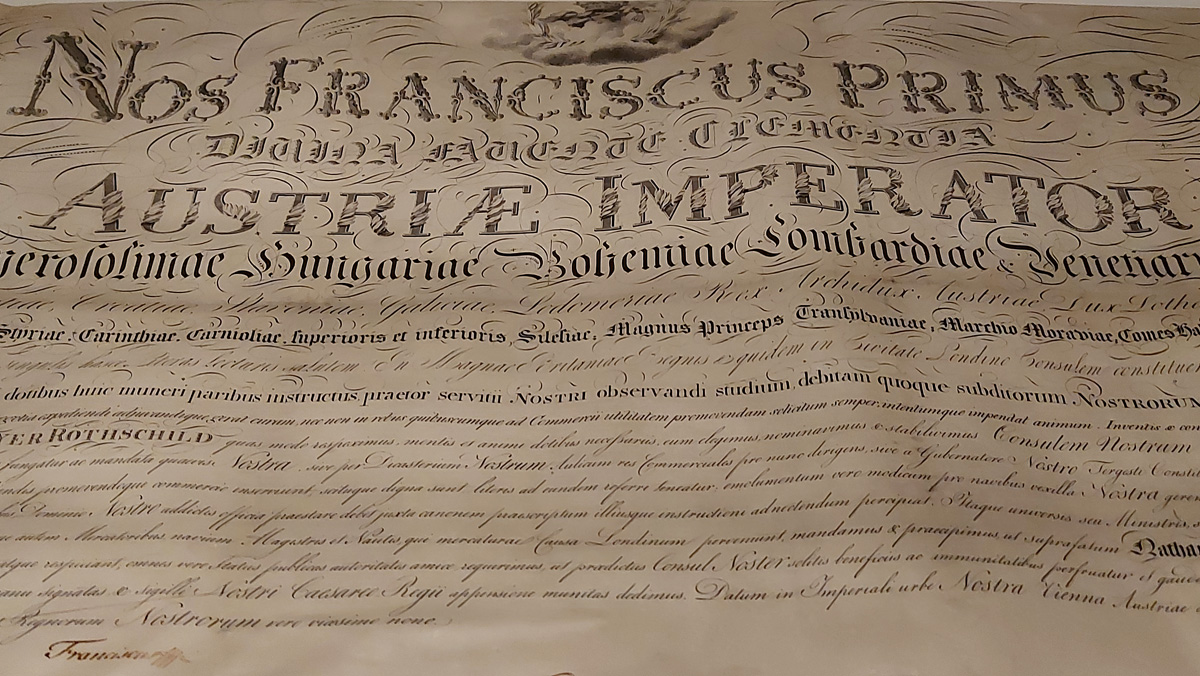 NOS FRANCISCUS PRIMUS
DIVINA FAVENTE CLEMENTIA
AUSTRIÆ IMPERATOR
Hungariae Bohemiae Lombardiae &
Galiciae, Lodomeriae Rex Archidux Austriae Dux
Styriae, Carinthiae, Carnioliae, superioris et inferioris, Silesiae, Magnus Princeps Transylvaniae, Marchio Moraviae, Comes
salutem. in Magnae Britaniae Regnis equidem in Civitate Londino Consulem
dotibus huic muneri paribus instructus, praeter servitii NOSTRI observandi studium, debitam quoque subditorum NOSTRORUM
curam, nec non in rebus quibuscumque ad Commercii utilitatem promovendam solicitum semper, intentumque impendat animum.
ROTHSCHILD quas modo respeximus, mentis et animi dotibus necessariis, eum elegimus, nominavimus & stabilivimus Consulem Nostrum
fungatur ac mandata Nostra, sive per Dicasterium Nostrum, res Commerciales pro nunc dirigens, sive a Gubernatore Nostro
commercio inserviunt, scituque digna sunt, literis ad eundem referri teneatur, emolumentum vero modicum pro navibus vexilla Nostra
Dominio Nostro addictis officia praestare debet juxta canonem praescriptum illiusque instructioni adnectendum percipiat. Itaque universis seu Ministris,
autem Mercatoribus, navium Magistris et Nautis, qui mercaturae Causa Londinum perveniunt, mandamus & praecipimus ut suprafatum
respiciant, omnes vero Status publicas autoritates amice requirimus, ut praedictus Consul Noster solitis beneficiis ac immunitatibus perfruatur et
signatas & sigilli Nostri Caesareo Regii appensione munitas dedimus. Datum in Imperiali urbe Nostra Vienna Austriae
Regnorum Nostrorum vero vicesimo nono.
Franciscus